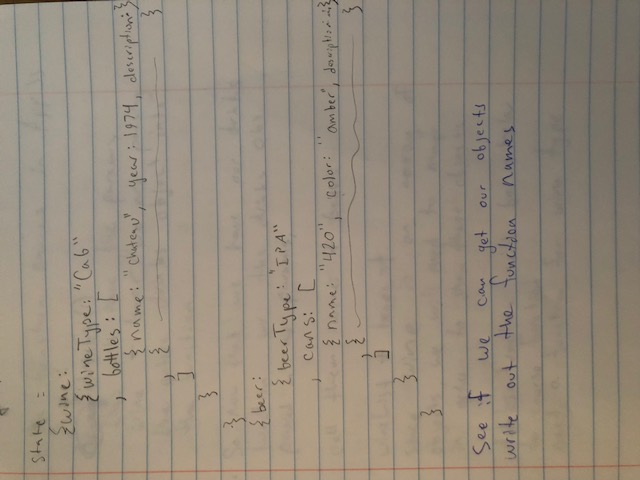 state =
{wine:
{wineType: "Cab"
, bottles: [
{name: "chateau", year: 1974, description: }
, { }
]
}
}
{beer:
{beerType: "IPA"
, cans: [
{name: "420", color: "amber", description: }
, { }
]
}
}
See if we can get our objects
write out the function names